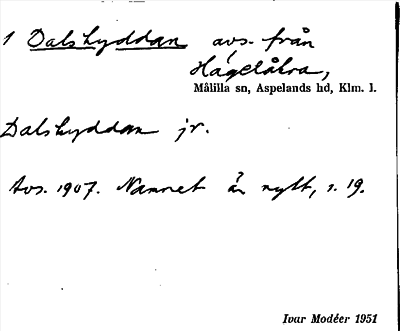 1 Dalshyddan avs. från
Hagelåkra,
Målilla sn, Aspelands hd, Klm. l.
Dalshyddan jr.
Avs. 1907. Namnet är nytt, s. 19.
Ivar Modéer 1951